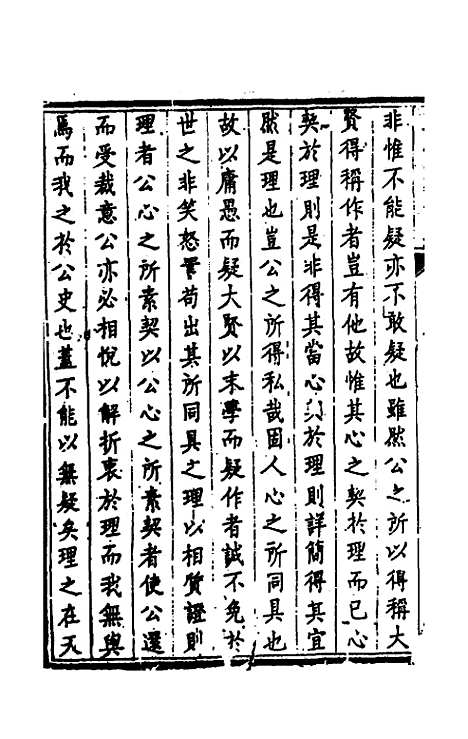 非惟不能疑亦不敢疑也雖然公之所以得稱大
賢得稱作者豈有他故惟其心之契於理而已心
契於理則是非得其當心於理則詳簡得其宜
然是理也豈公之所得私哉固人心之所同具也
故以庸愚而疑大賢以末學而疑作者誠不免於
世之非笑怒詈苟出其所同具之理以相質證則
理者公心之所素契以公心之所素契者使公還
而受裁意公亦必相悅以解折衷於理而我無與
焉而我之於公史也蓋不能以無疑矣理之在天